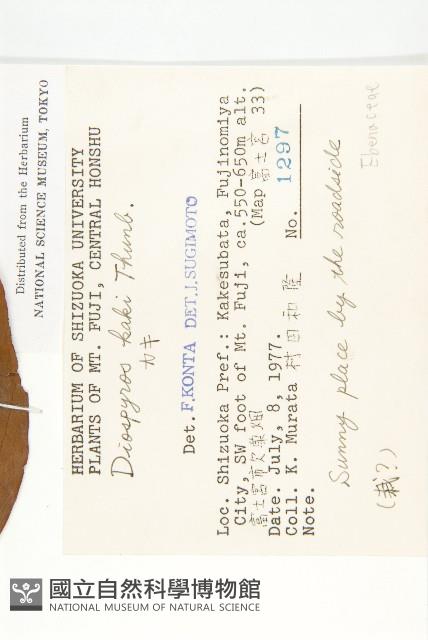 Distributed from the Herbarium
NATIONAL SCIENCE MUSEUM, TOKYO
HERBARIUM OF SHIZUOKA UNIVERSITY
PLANTS OF MT. FUJI, CENTRAL HONSHU
Diospyros kaki Thunb.
カキ
Det. F.KONTA DET.J.SUGIMOTO
Loc. Shizuoka Pref.: Kakesubata, Fujinomiya
City, SW foot of Mt. Fuji, ca.550-650m alt.
富士宮市欠巣畑 (Map 富士宮 33)
Date. July, 8, 1977.
Coll. K. Murata 村田和隆 No. 1297
Note.
Sunny place by the roadside
(栽?)
Ebenaceae
國立自然科學博物館
NATIONAL MUSEUM OF NATURAL SCIENCE